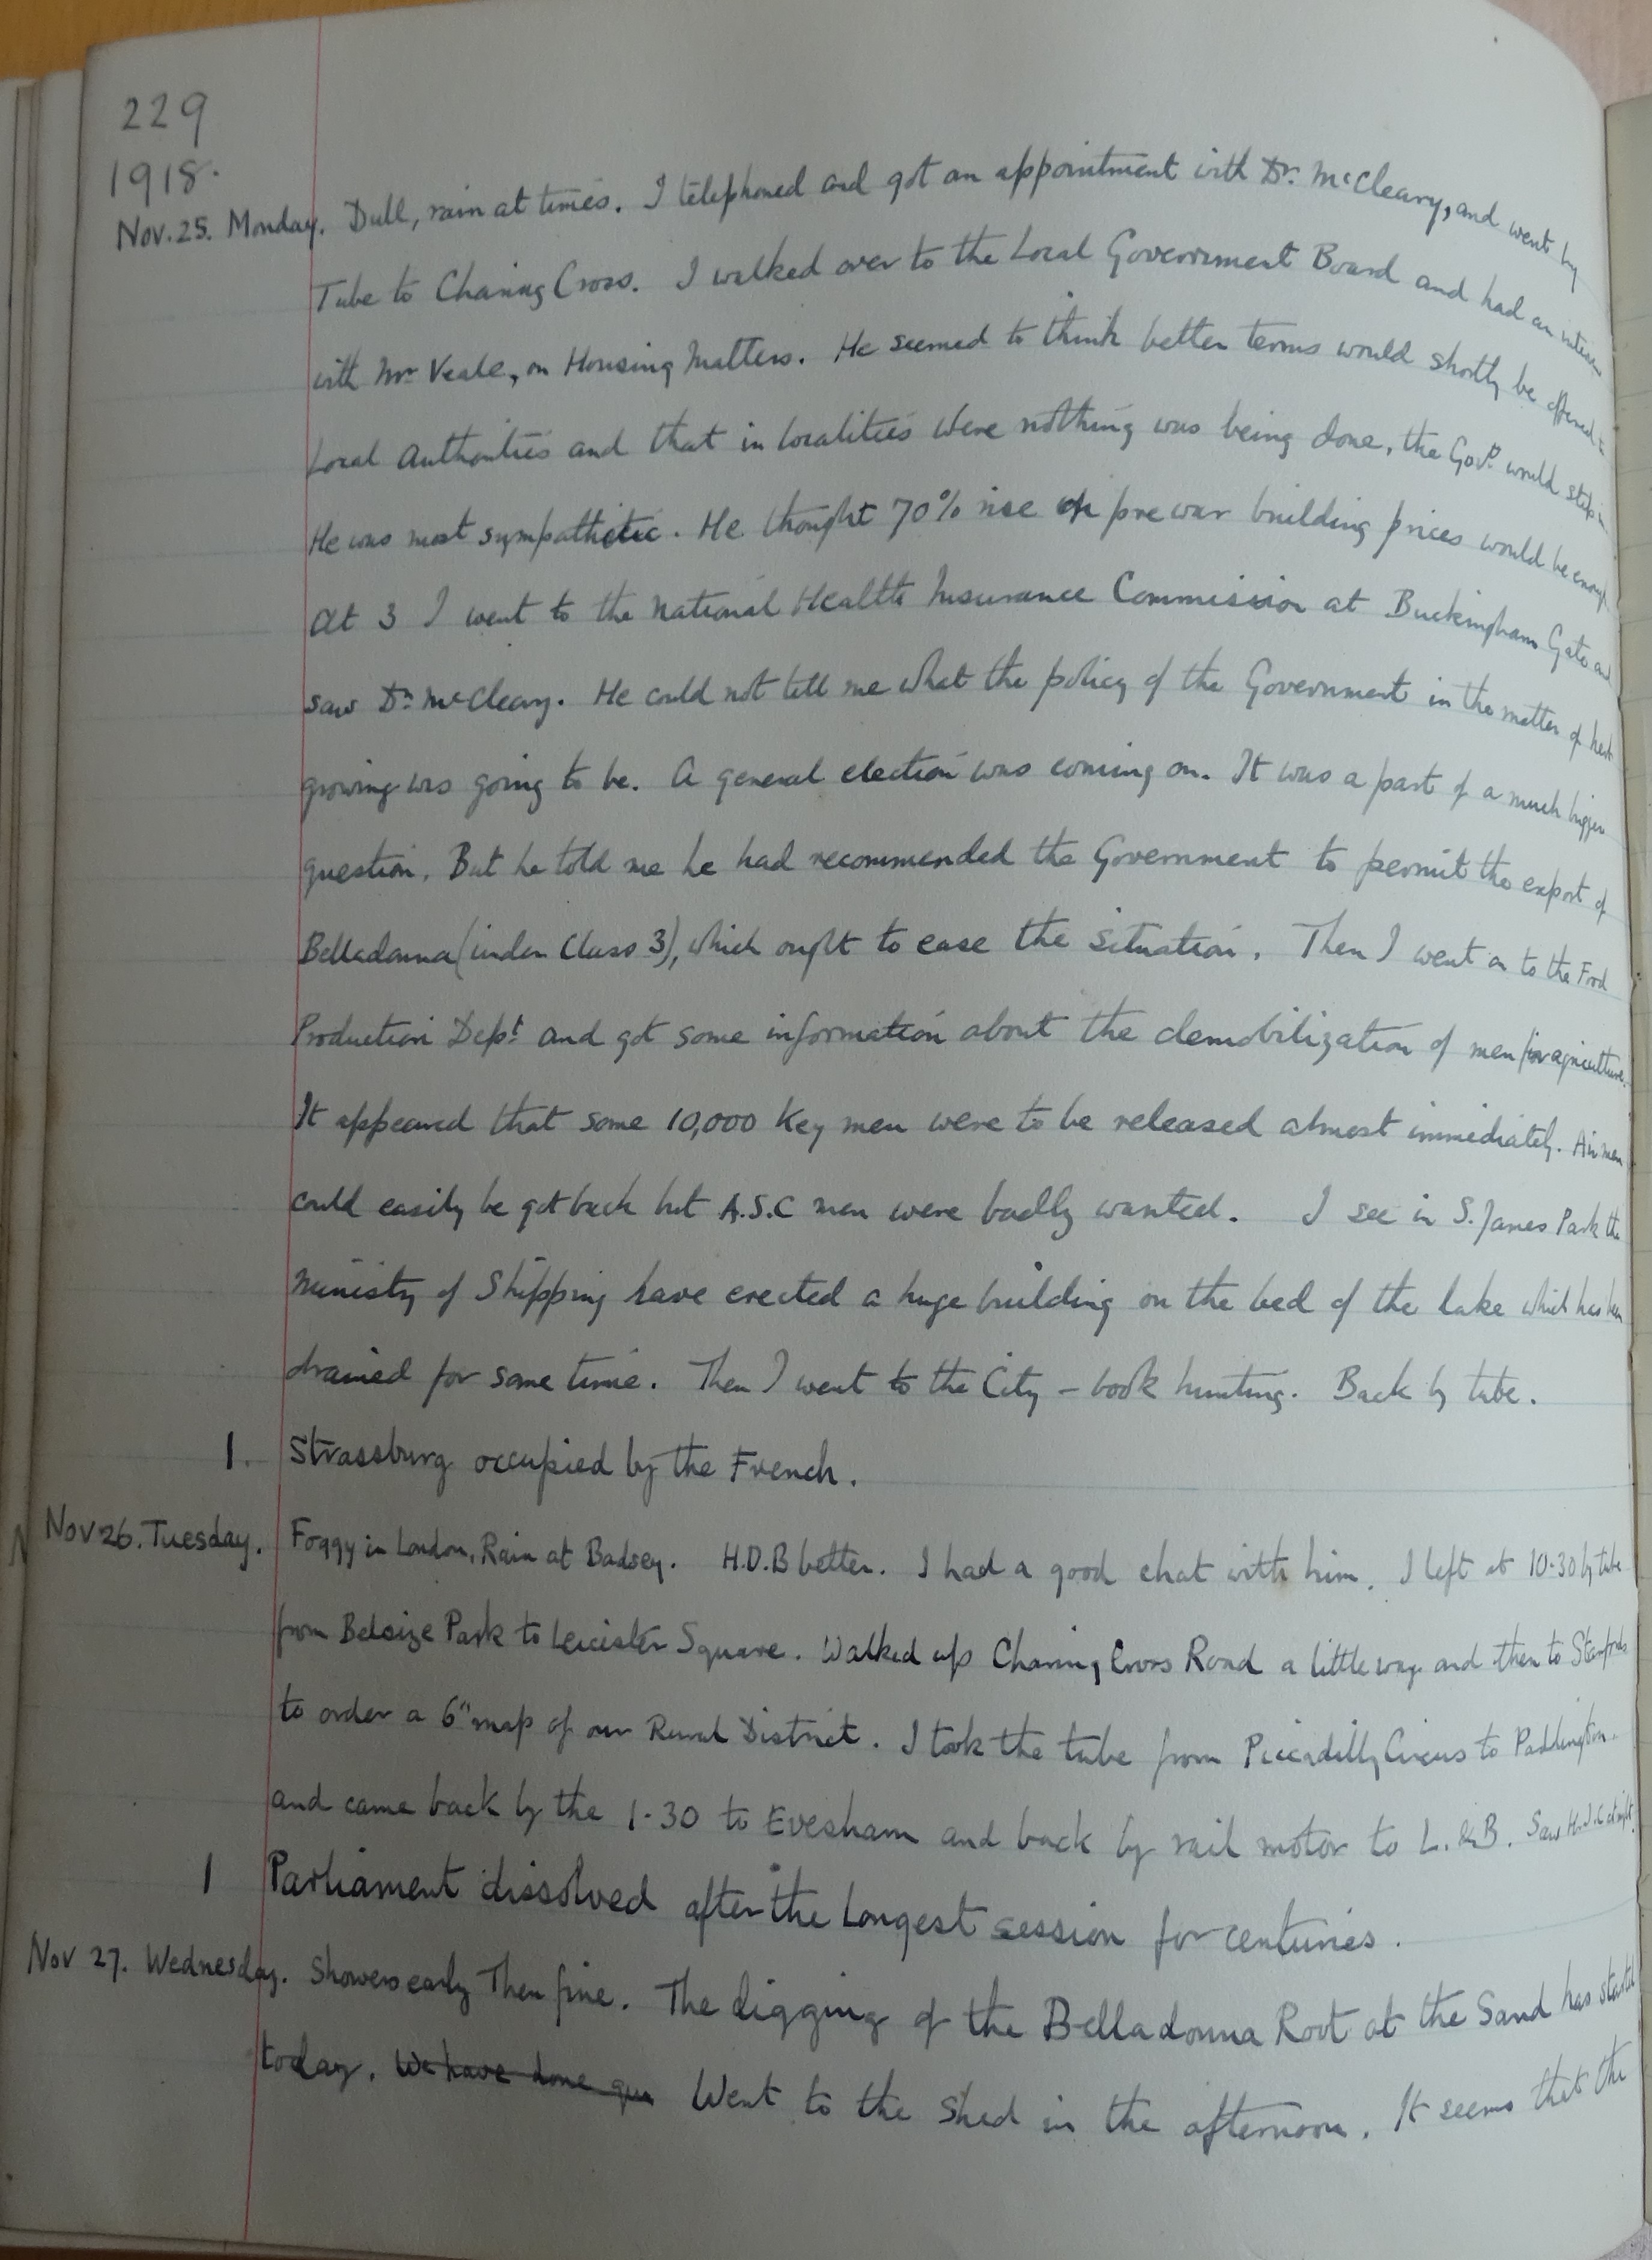 229
1918.
Nov. 25. Monday. Dull, rain at times. I telephoned and got an appointment with Dr. McCleary, and went by
Tube to Charing Cross. I walked over to the Local Government Board and had an
with Mr Veale, on Housing Matters. He seemed to think better terms would shortly be offered to
Local Authorities and that in localities were nothing was being done, the Govt would step in
He was most sympathetic. He thought 70% rise on pre war building prices would be enough
At 3 I went to the National Health Insurance Commission at Buckingham Gate and
saw Dr McCleary. He could not tell me what the policy of the Government in the matter of herb
growing was going to be. A general election was coming on. It was a part of a much bigger
question. But he told me he had recommended the Government to permit the export of
Belladonna (under Class 3), which ought to ease the situation. Then I went on to the Food
Production Dept and got some information about the demobilization of men for agriculture.
It appeared that some 10,000 key men were to be released almost immediately. Air men
could easily be got back but A.S.C men were badly wanted. I see in S. James Park the
Ministry of Shipping have erected a huge building on the bed of the lake which has been
drained for some time. Then I went to the City – book hunting. Back by tube.
1. Strassburg occupied by the French.
Nov 26. Tuesday. Foggy in London, Rain at Badsey. H.D.B better. I had a good chat with him. I left at 10-30 by tube
from Belsize Park to Leicester Square. Walked up Charing Cross Road a little way and then to Stanfords
to order a 6" map of our Rural District. I took the tube from Piccadilly Circus to Paddington.
and came back by the 1-30 to Evesham and back by rail motor to L. & B. Saw at night.
1 Parliament dissolved after the Longest session for centuries.
Nov 27. Wednesday. Showers early Then fine. The digging of the Belladonna Root at the Sand has started
today. We have done qua Went to the Shed in the afternoon. It seems that the